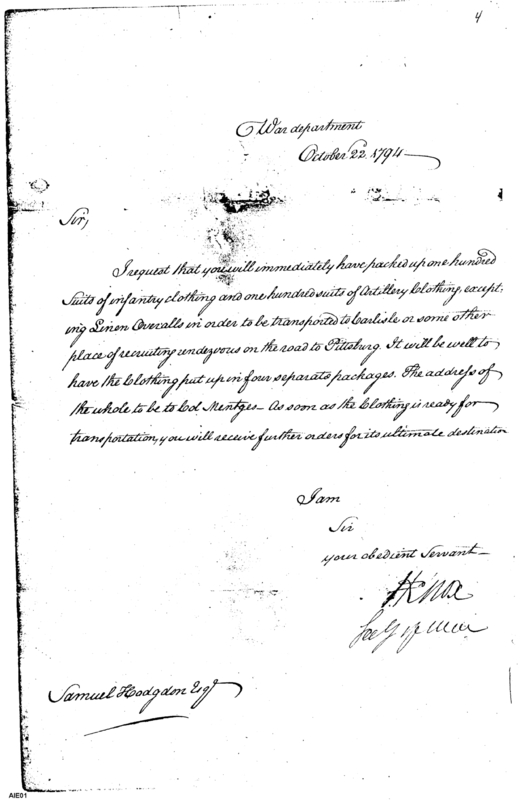 4
War department
October 22. 1794
Sir,
I request that you will immediately have packed up one hundred
Suits of infantry clothing and one hundred suits of Artillery Clothing, except-
ing Linen Overalls in order to be transported to Carlisle or some other
place of recruiting rendezvous on the road to Pittsburg. It will be well to
have the Clothing put up in four separate packages. The address of
the whole to be to Col Mentges_ As soon as the Clothing is ready for
transportation, you will receive further orders for its ultimate destination
I am
Sir
your obedient Servant_
HKnox
Secy of War
Samuel Hodgdon Esqr
AIE01